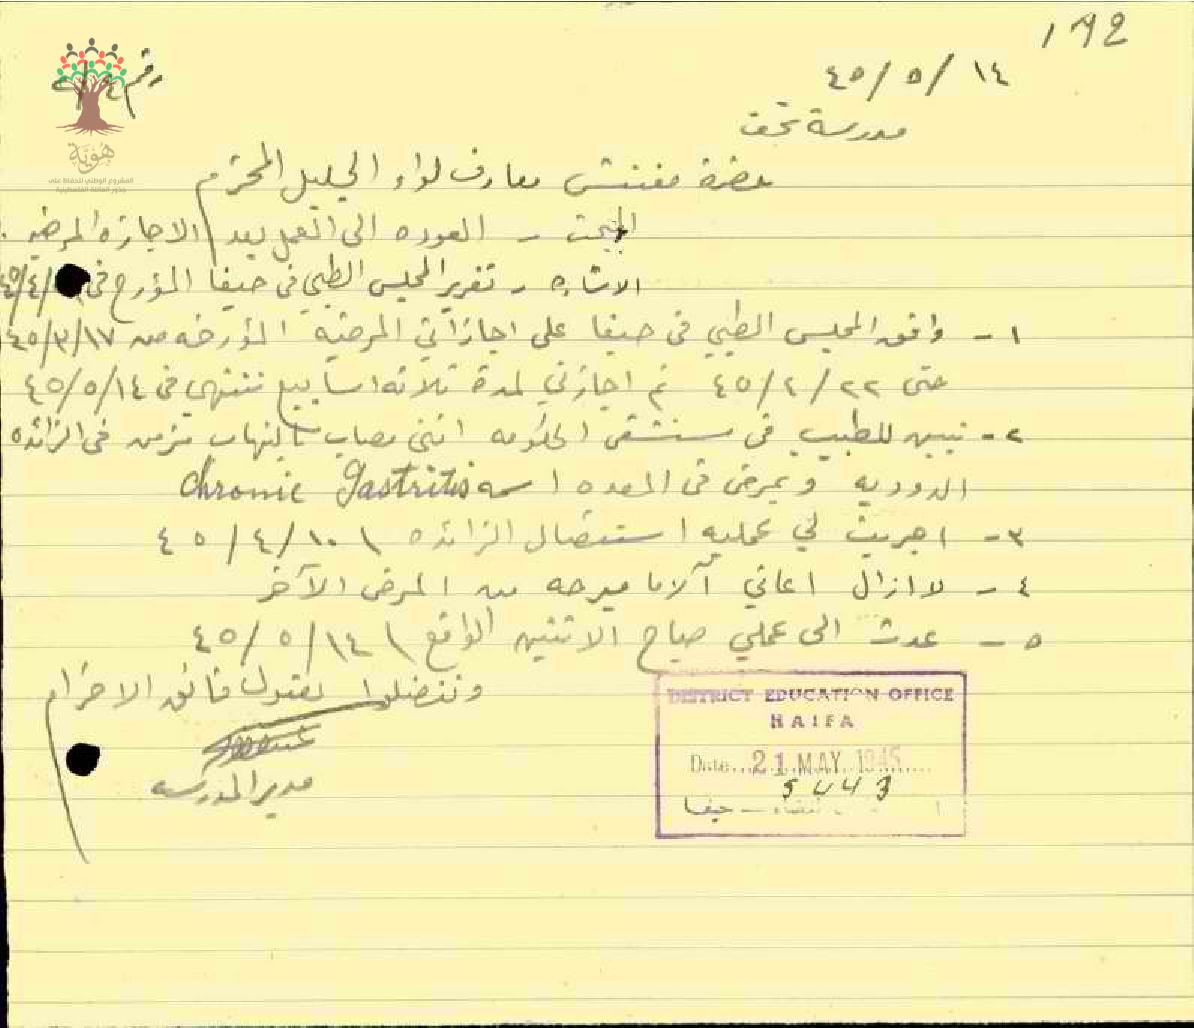 192
٤٥/٥/١٤
رقم
مدرسة
هوية
المشروع الوطني للحفاظ على
جذور العائلة الفلسطينية
حضرة مفتش معارف لواء الجليل المحترم
المبحث - العوده الى العمل بعد الاجازه المرضيه .
الاشاره - تقرير المجلس الطبي في حيفا المؤرخ في
١- وافق المجلس الطبي في حيفا على اجازاتي المرضيه المؤرخه من ٤٥/٣/١٧
حتى ٤٥/٤/٢٢ ثم اجازتي لمدة ثلاثه اسابيع تنتهي في ٤٥/٥/١٤
٢- تبين للطبيب في مستشفى الحكومه انني مصاب بالتهاب مزمن في الزائده
الدوديه وبمرض في المعده اسمه Chronic Gastritis
٣- اجريت لي عمليه استئصال الزائده ٤٥/٤/١٠
٤- لا ازال اعاني آلاما مبرحه من المرض الآخر
٥- عدت الى عملي صباح الاثنين الواقع ٤٥/٥/١٤
وتفضلوا بقبول فائق الاحترام
مدير المدرسه
DISTRICT EDUCATION OFFICE
HAIFA
Date...21 MAY 1945......
5443
حيفا